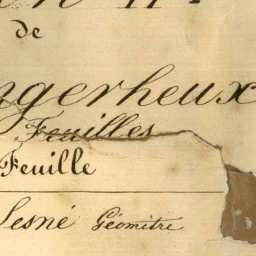 de
ngerheux
Feuilles
Feuille
Lesné Géomètre